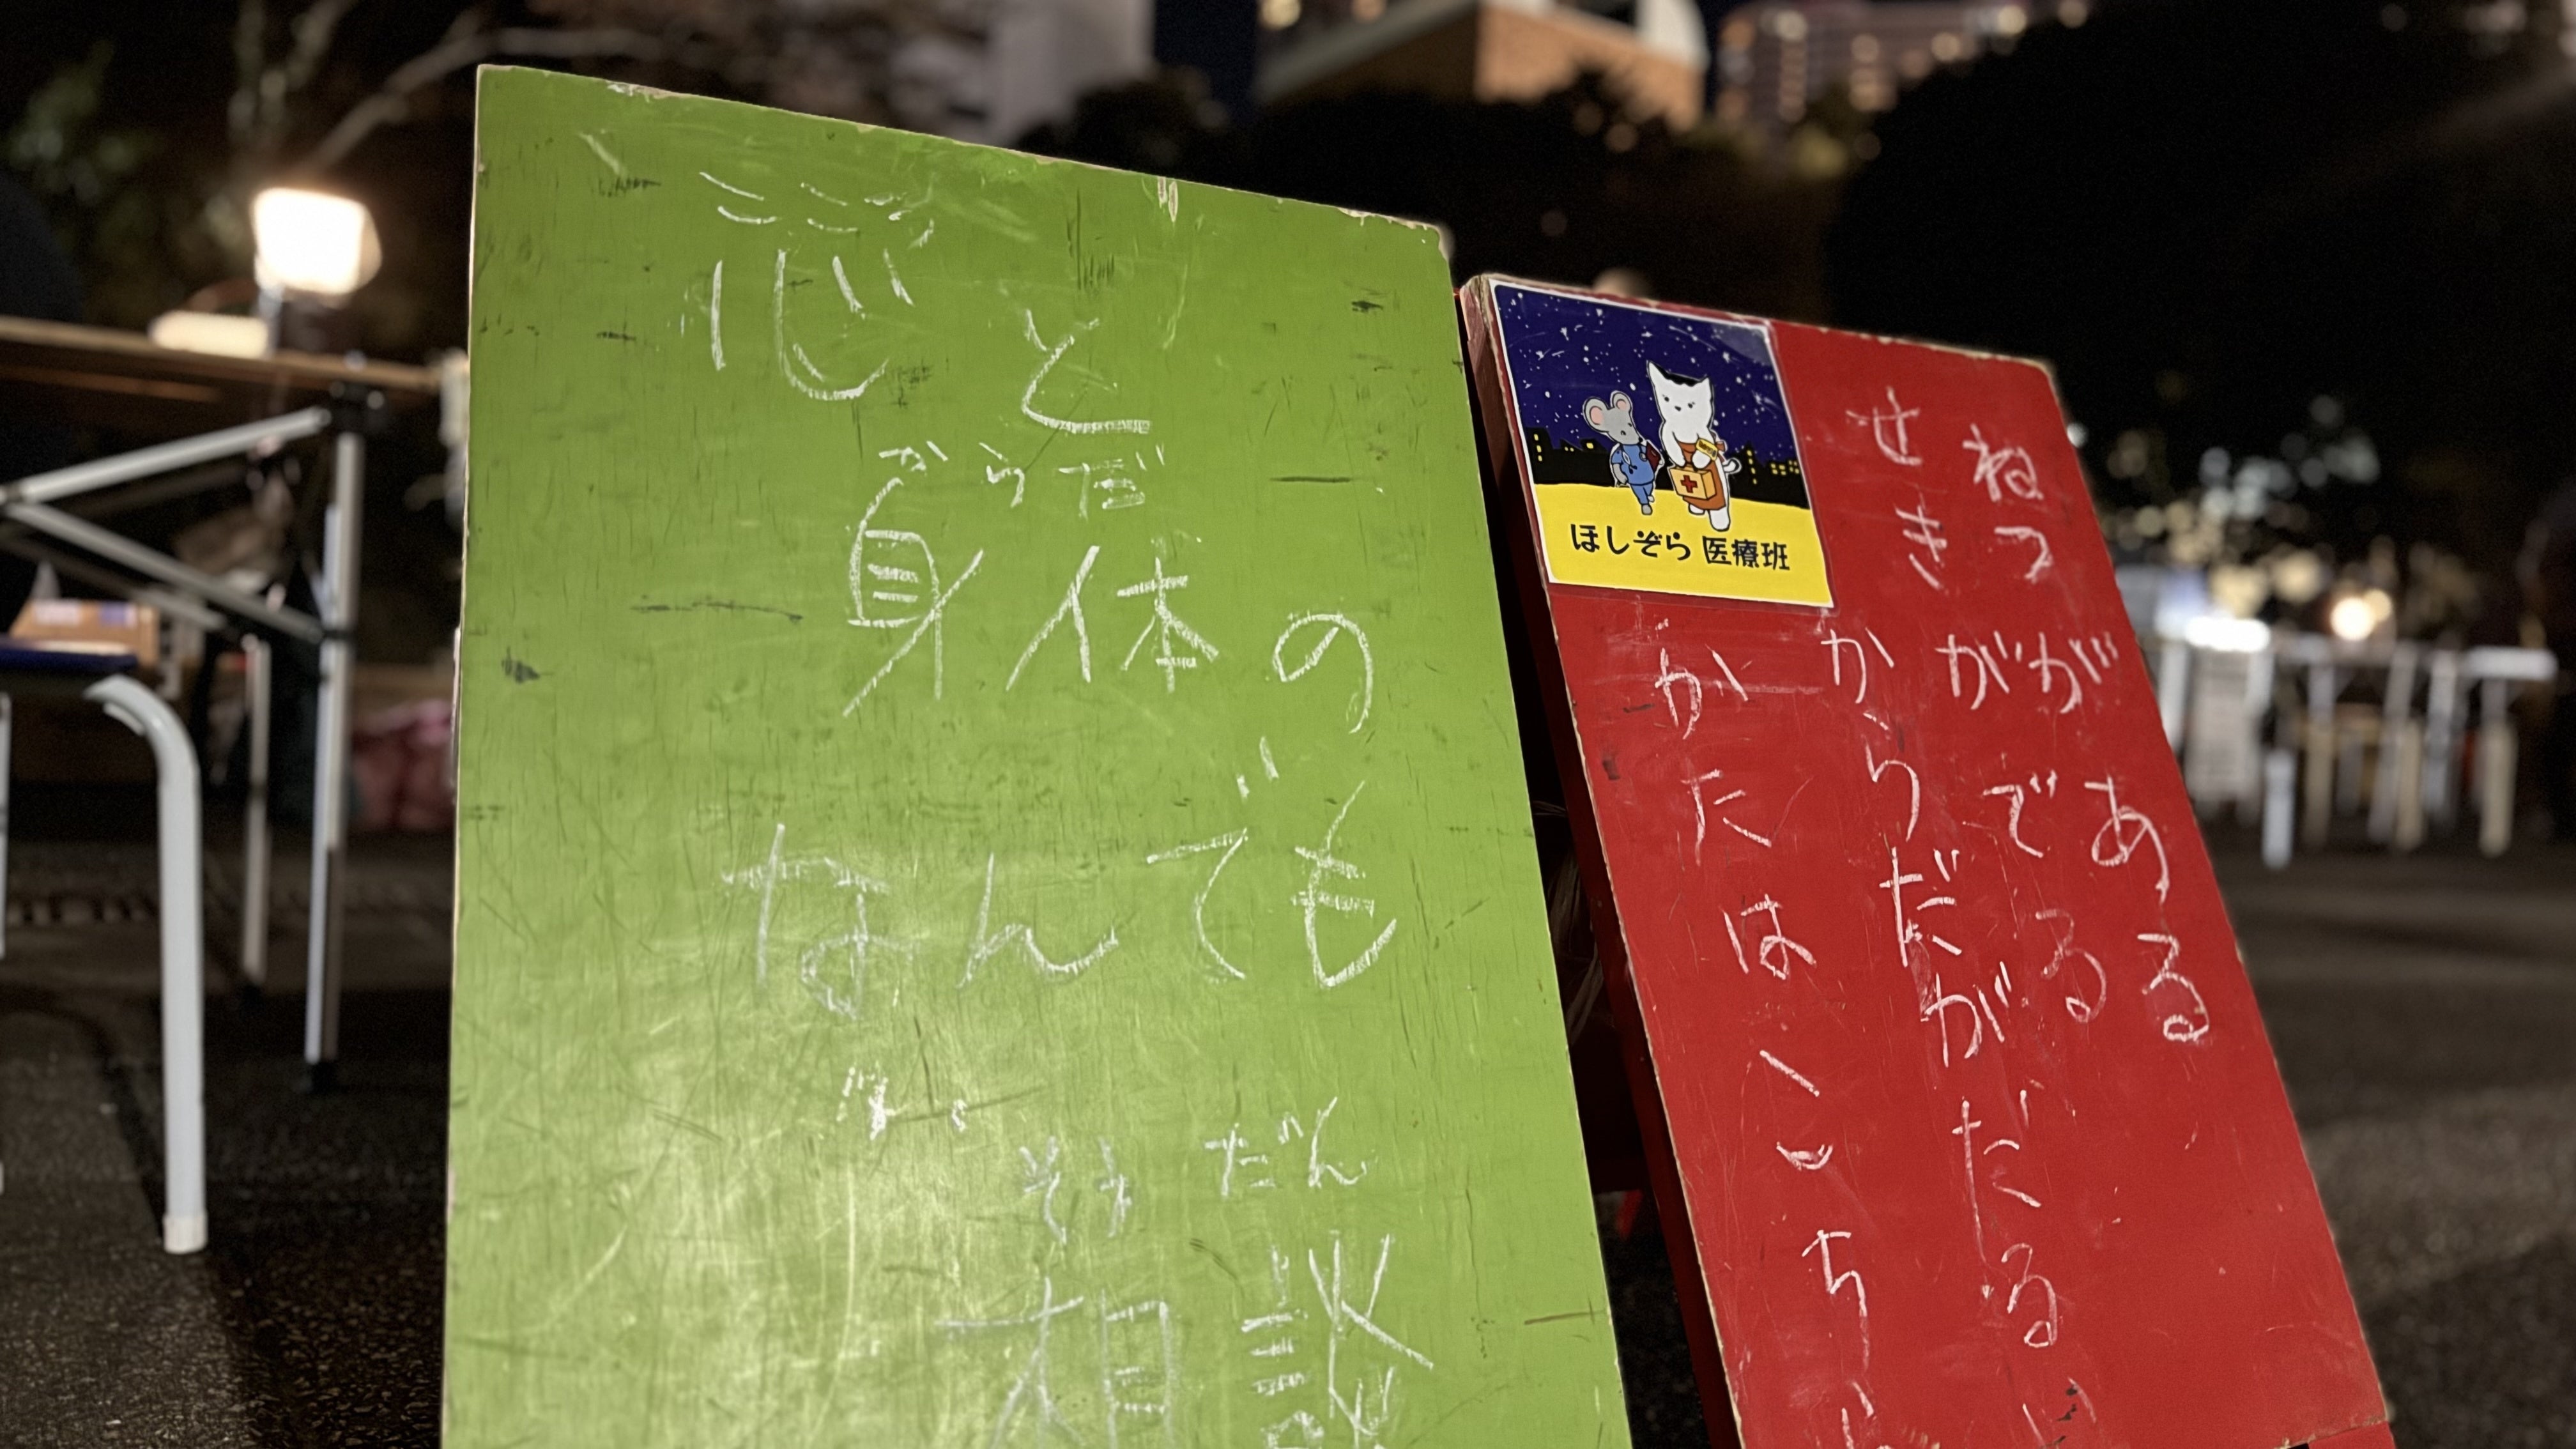 こころ
心と
からだ
身体の
なんでも
そうだん
相談
ほしぞら 医療班
ねつがある
せきがでる
からだがだるい
かたはこちら